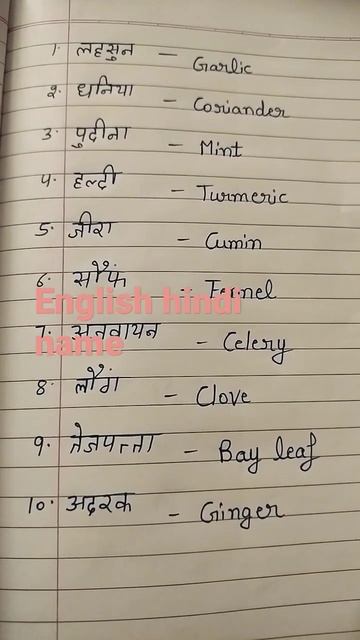 1. लहसुन – Garlic
2. धनिया – Coriander
3. पुदीना – Mint
4. हल्दी – Turmeric
5. जीरा – Cumin
6. सौंफ – Fennel
English hindi
name
7. अजवायन – Celery
8. लौंग – Clove
9. तेजपत्ता – Bay leaf
10. अदरक – Ginger